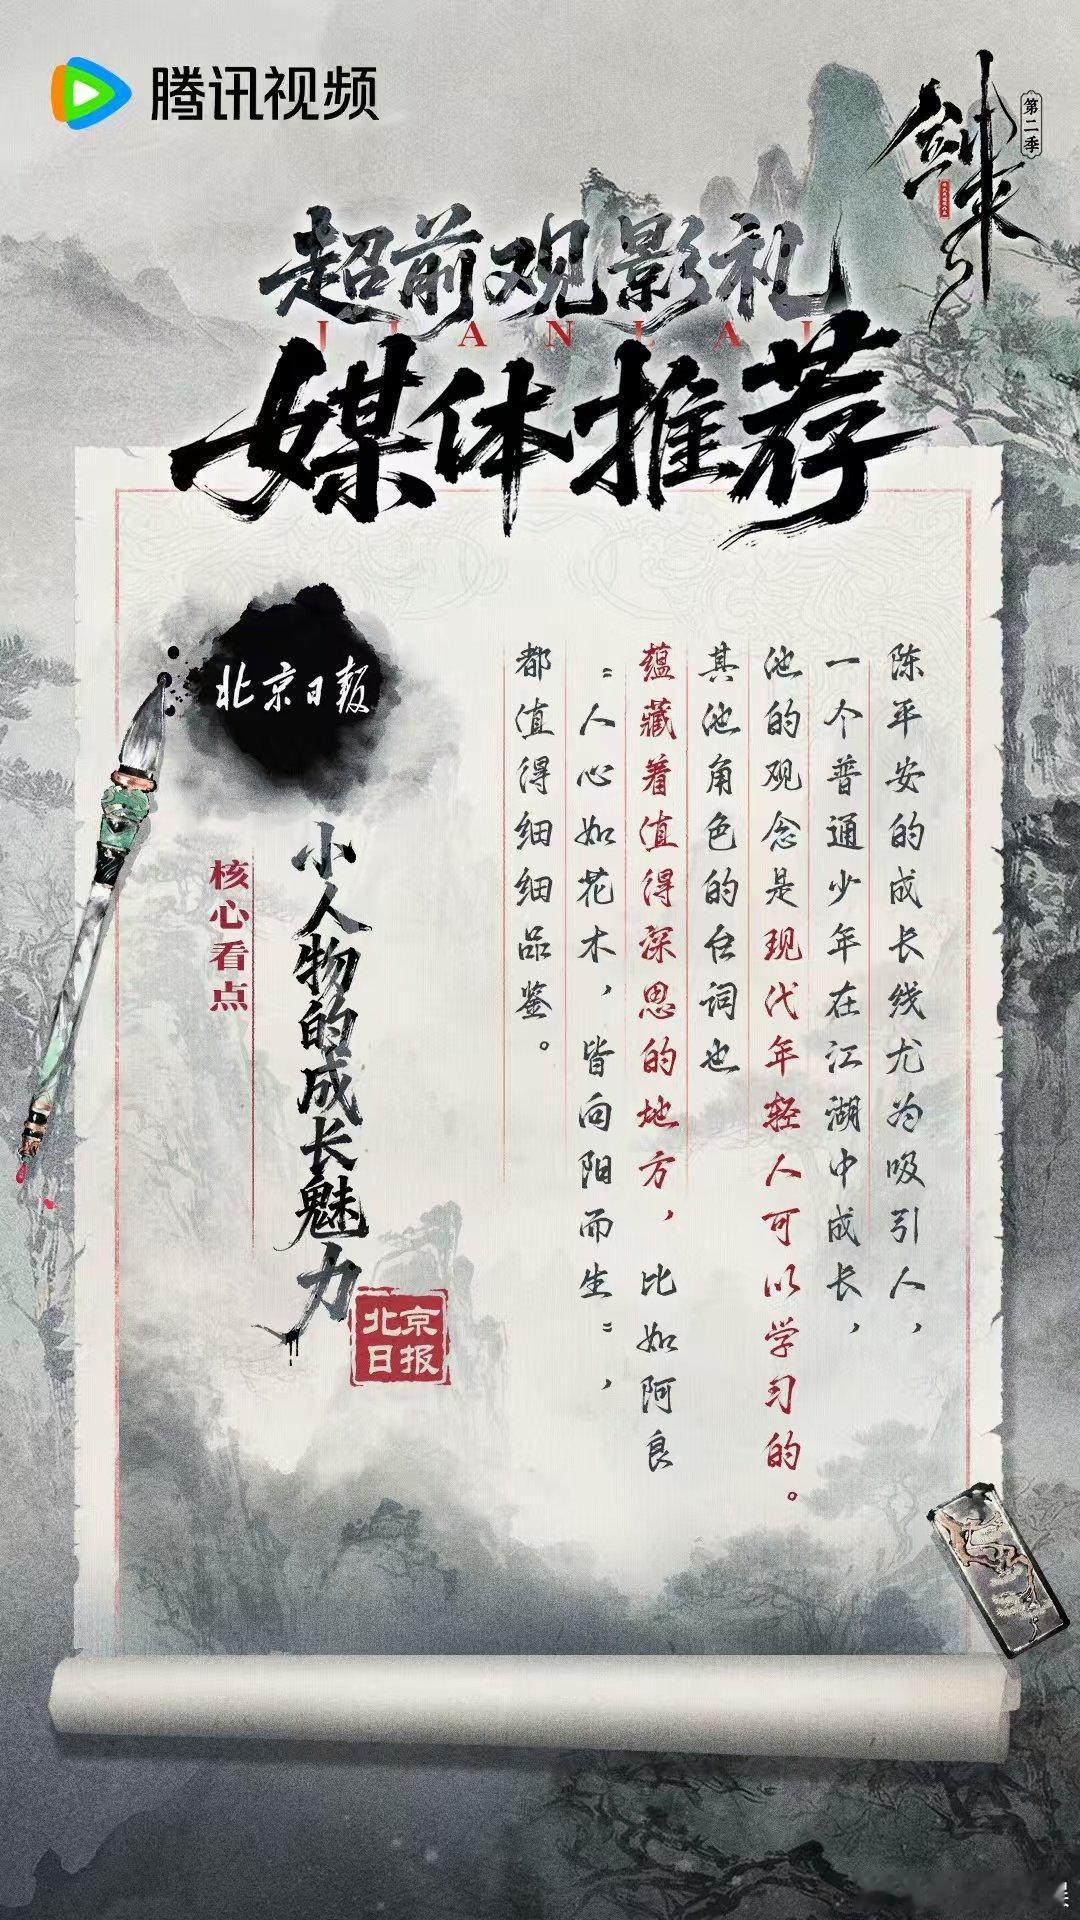 腾讯视频
剑来
第二季
超前观影礼
JIANLAI
媒体推荐
北京日报
核心看点
小人物的成长魅力
北京
日报
陈平安的成长线尤为吸引人，
一个普通少年在江湖中成长，
他的观念是现代年轻人可以学习的。
其他角色的台词也
蕴藏着值得深思的地方，比如阿良
“人心如花木，皆向阳而生”，
都值得细细品鉴。